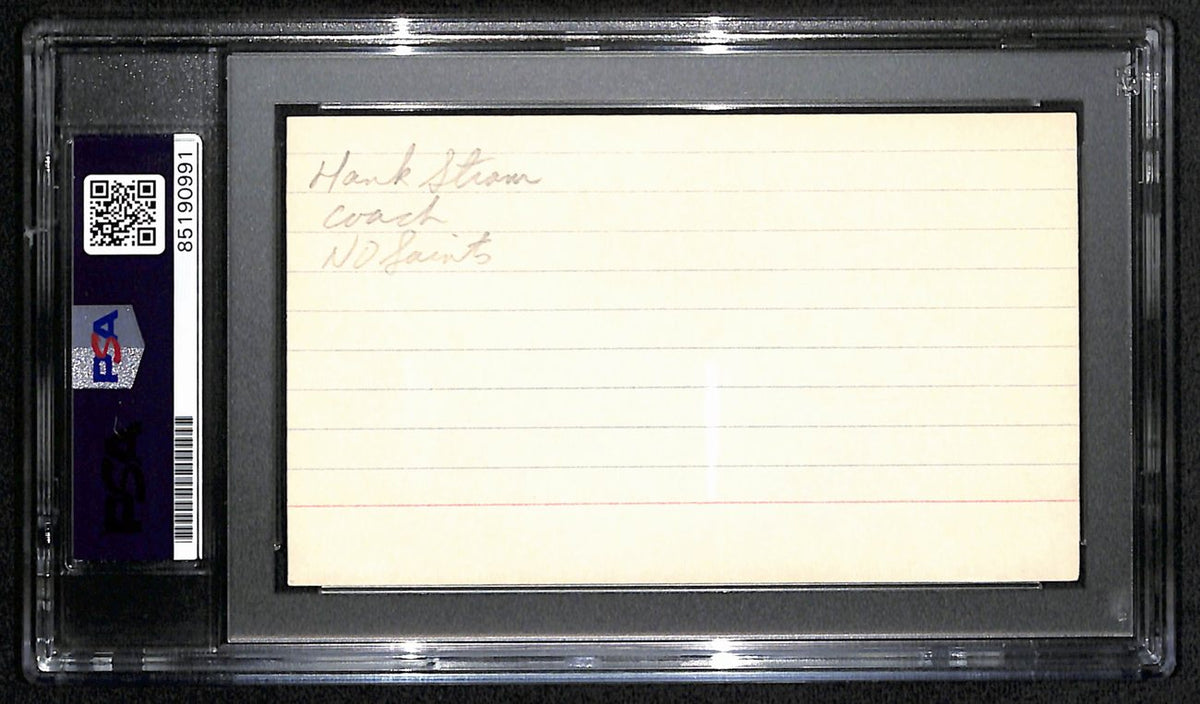 Hank Stram
Coach
NO Saints
85190991
PSA
PSA